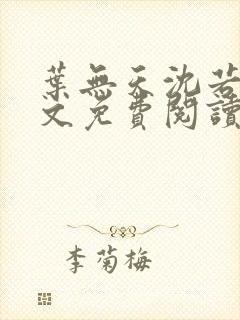 葉無天沈若
文免費閱讀
李菊梅